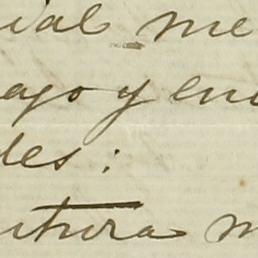 ial me
ayo y en
des:
itura m